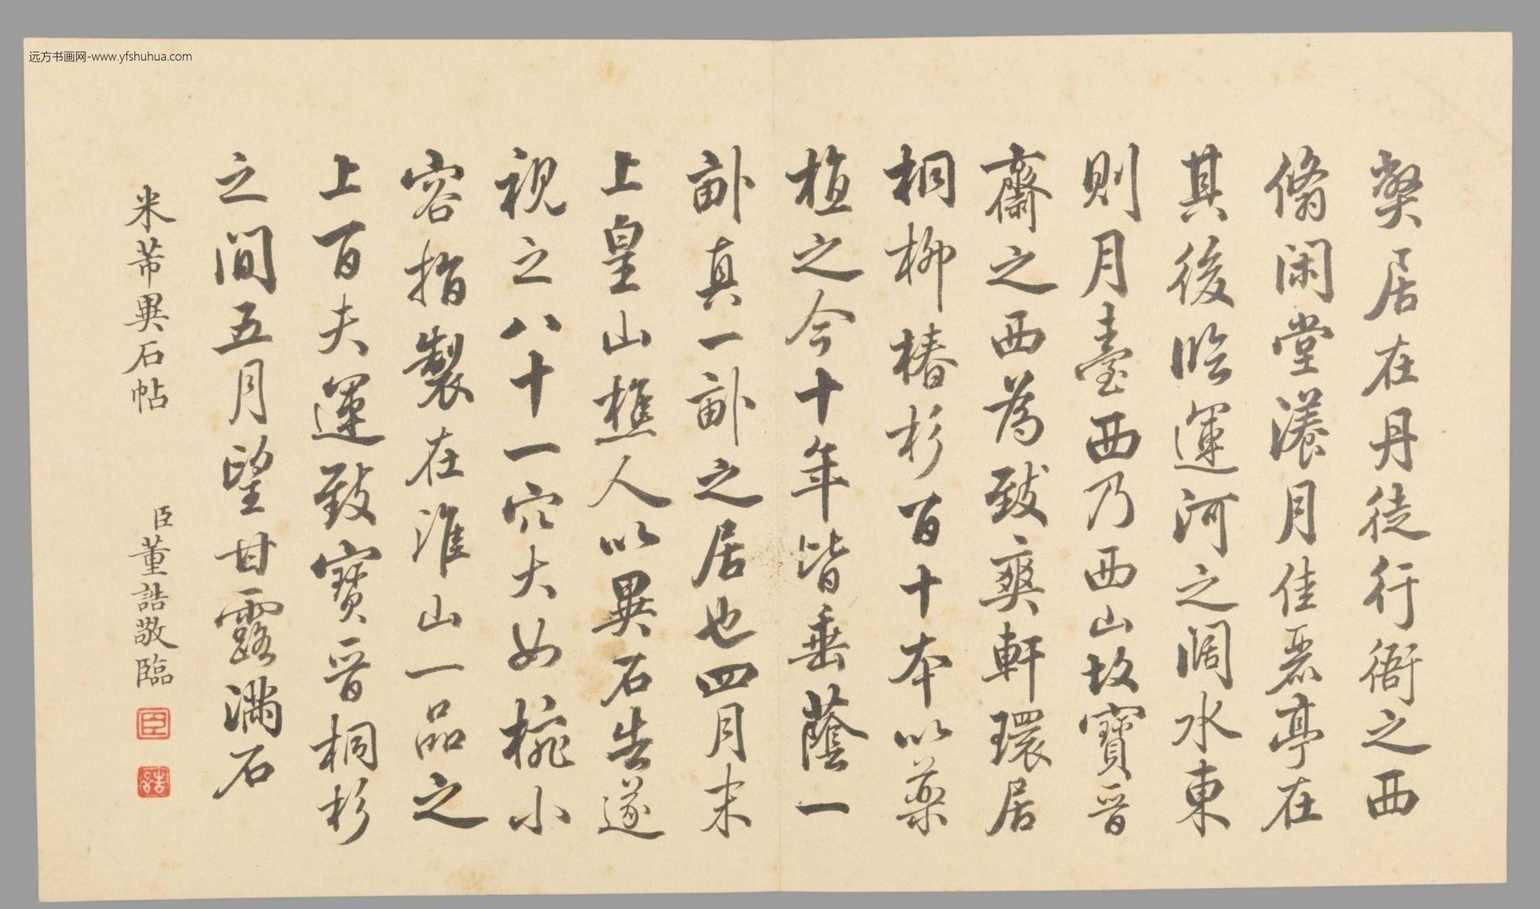 弊居在丹徒行衙之西
翛闲堂漾月佳丽亭在
其後临運河之阔水東
則月臺西乃西山故寶晋
齋之西為致爽軒環居
桐柳椿杉百十本以药
植之今十年皆垂蔭一
畝真一畝之居也四月末
上皇山樵人以異石告遂
視之八十一穴大如椀小
容指製在淮山一品之
上百夫運致寶晋桐杉
之間五月望甘露满石
米芾異石帖
臣董誥敬臨
臣
誥
远方书画网-www.yfshuhua.com